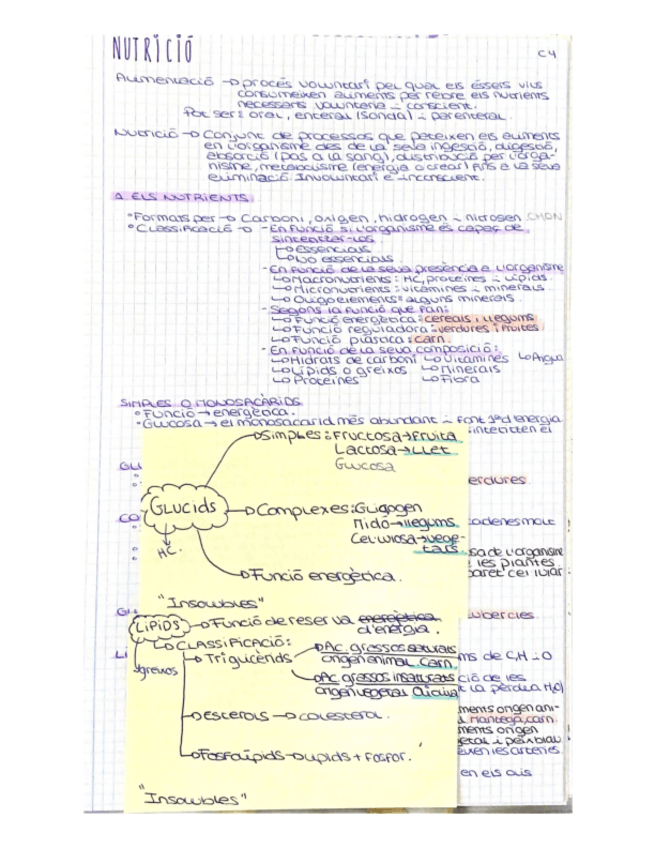 NUTRICIÓ
C4
Alimentació → procés voluntari pel qual els éssers vius
consumeixen aliments per rebre els nutrients
necessaris voluntaria i conscient.
Pot ser: oral, enteral (sonda) i parenteral.
Nutrició → Conjunt de processos que pateixen els aliments
en l'organisme des de la seva ingesció, digesció,
absorció (pas a la sang), distribució per l'orga-
nisme, metabolisme (energia o crear) fins a la seva
eliminació. Involuntari e inconscient.
1. ELS NUTRIENTS.
°Formats per → Carboni, oxigen, hidrogen i nitrogen CHON
°Classificació → - En funció si l'organisme és capaç de
sintetitzar-los
↳ Essencials
↳ No essencials
- En funció de la seva presència a l'organisme
↳ Macronutrients: HC, proteïnes i lípids.
↳ Micronutrients: vitamines i minerals
↳ Oligoelements: alguns minerals.
- Segons la funció que fan:
↳ Funció energètica: cereals i llegums.
↳ Funció reguladora: verdures i fruites
↳ Funció plàstica: carn.
- En funció de la seva composició:
↳ Hidrats de carboni ↳ Vitamines ↳ Aigua
↳ Lípids o greixos ↳ Minerals
↳ Proteïnes ↳ Fibra
SIMPLES O MONOSACÀRIDS
°Funció → energètica.
°Glucosa → el monosacarid més abundant i font 1ª d'energia
→ Simples: Fructosa → fruita
Lactosa → llet
Glucosa
GLU
erdures
GLUCIDS
→ Complexes: Glicogen
Midó → llegums.
Cel·lulosa → vege-
tals.
CO
HC.
sa de l'organisme
les plantes.
paret cel·lular
→ Funció energètica.
"Insolubles"
GL
LÍPIDS → Funció de reserva energètica
d'energia.
↳ CLASSIFICACIÓ:
greixos
→ Triglicèrids → Ac. grassos saturats
origen animal. Carn.
LI
ms de C, H i O
→ Ac. grassos insaturats
origen vegetal
ció de les
t la pèrdua H₂O)
ments origen ani-
Mantega, carn.
ments origen
→ esterols → colesterol.
→ Fosfolípids → lípids + fosfor.
en els
"Insolubles"